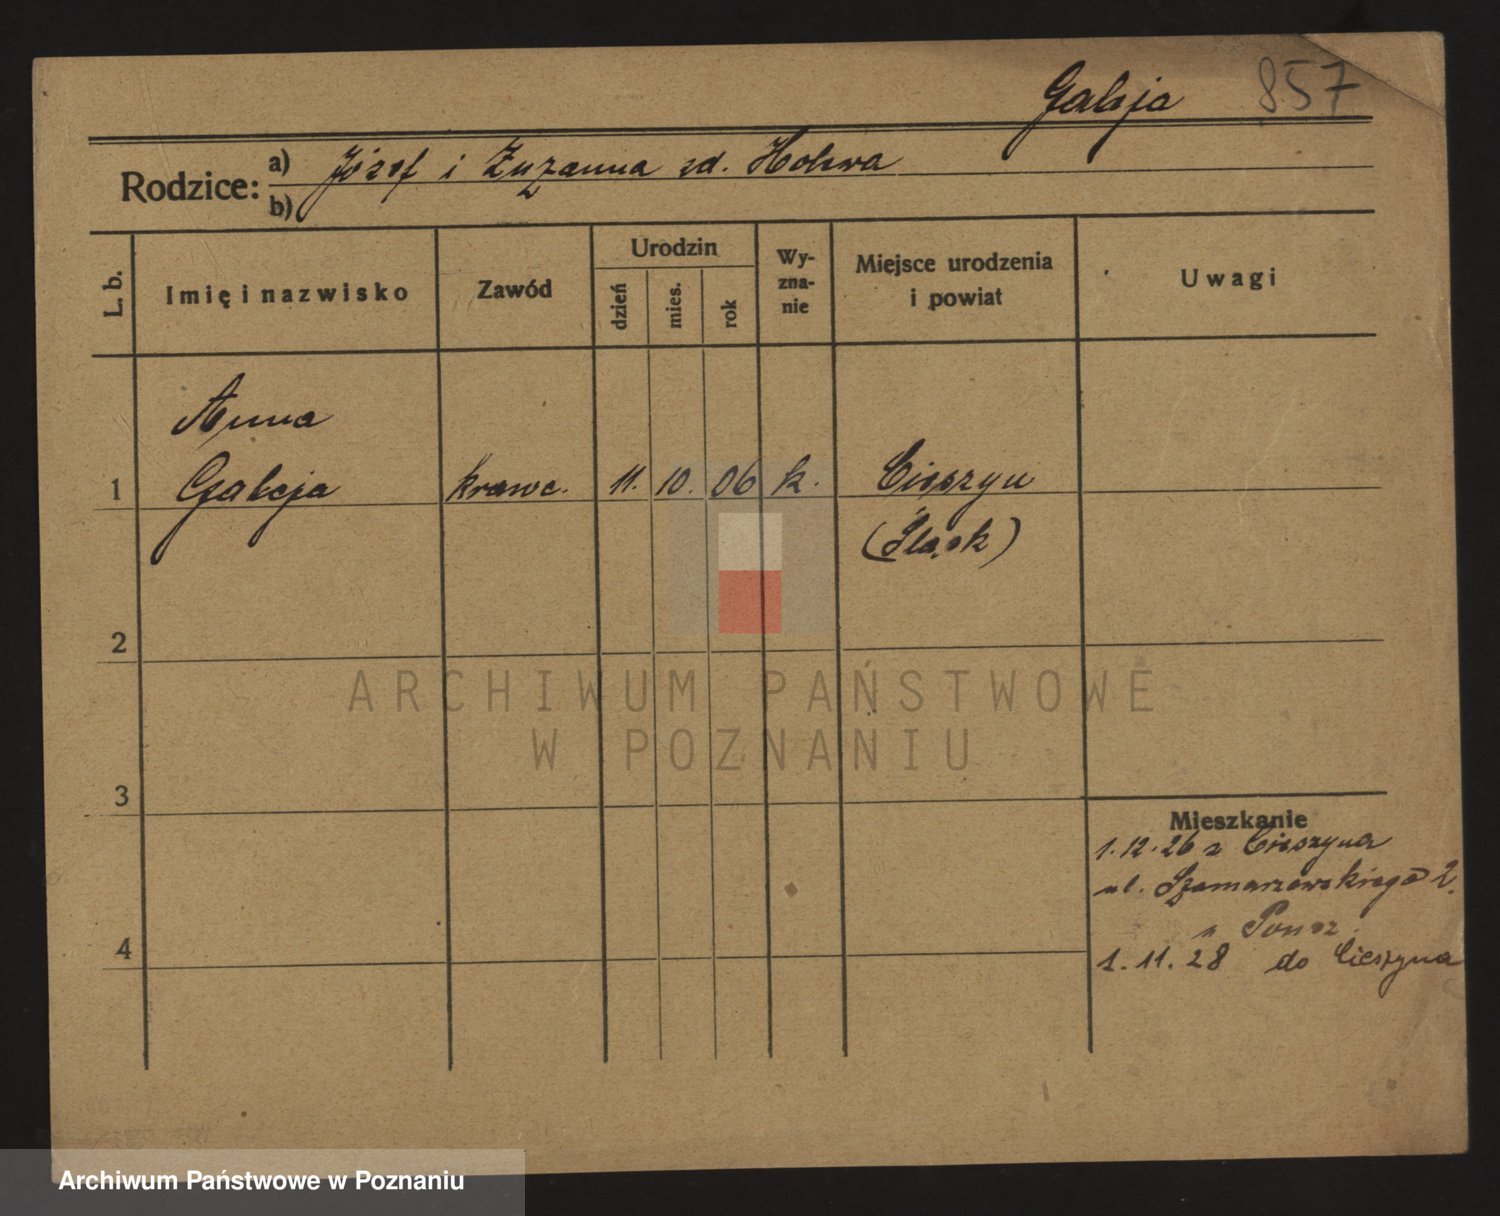 Galeja 857
Rodzice: a) Józef i Zuzanna zd.
b)
L. b.
Imię i nazwisko
Zawód
Urodzin
dzień
mies.
rok
Wy-
zna-
nie
Miejsce urodzenia
i powiat
Uwagi
Anna
1 Galeja krawc. 11. 10. 06 k. Cieszyn
(Śląsk)
2
ARCHIWUM PAŃSTWOWE
W POZNANIU
3
Mieszkanie
1.12.26 z Cieszyna
ul. Szamarzewskiego 2.
4
1.11.28 do Cieszyna
Archiwum Państwowe w Poznaniu